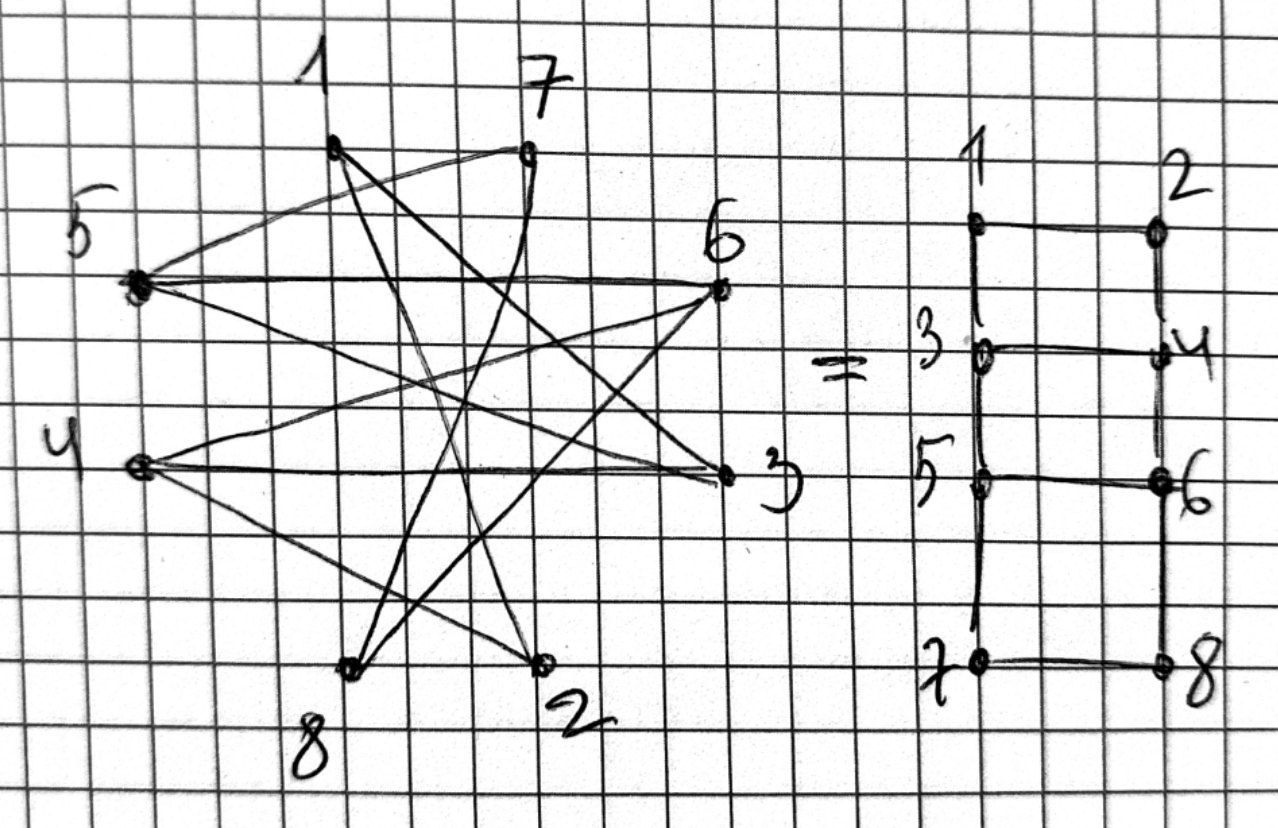 1 7
5 6
4 3
8 2
=
1 2
3 4
5 6
7 8